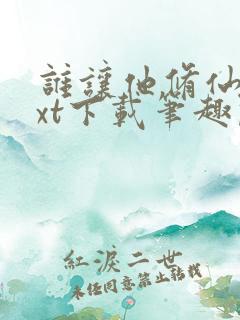 誰讓他脩仙
xt下載筆趣
紅淚二世
未经同意禁止转载